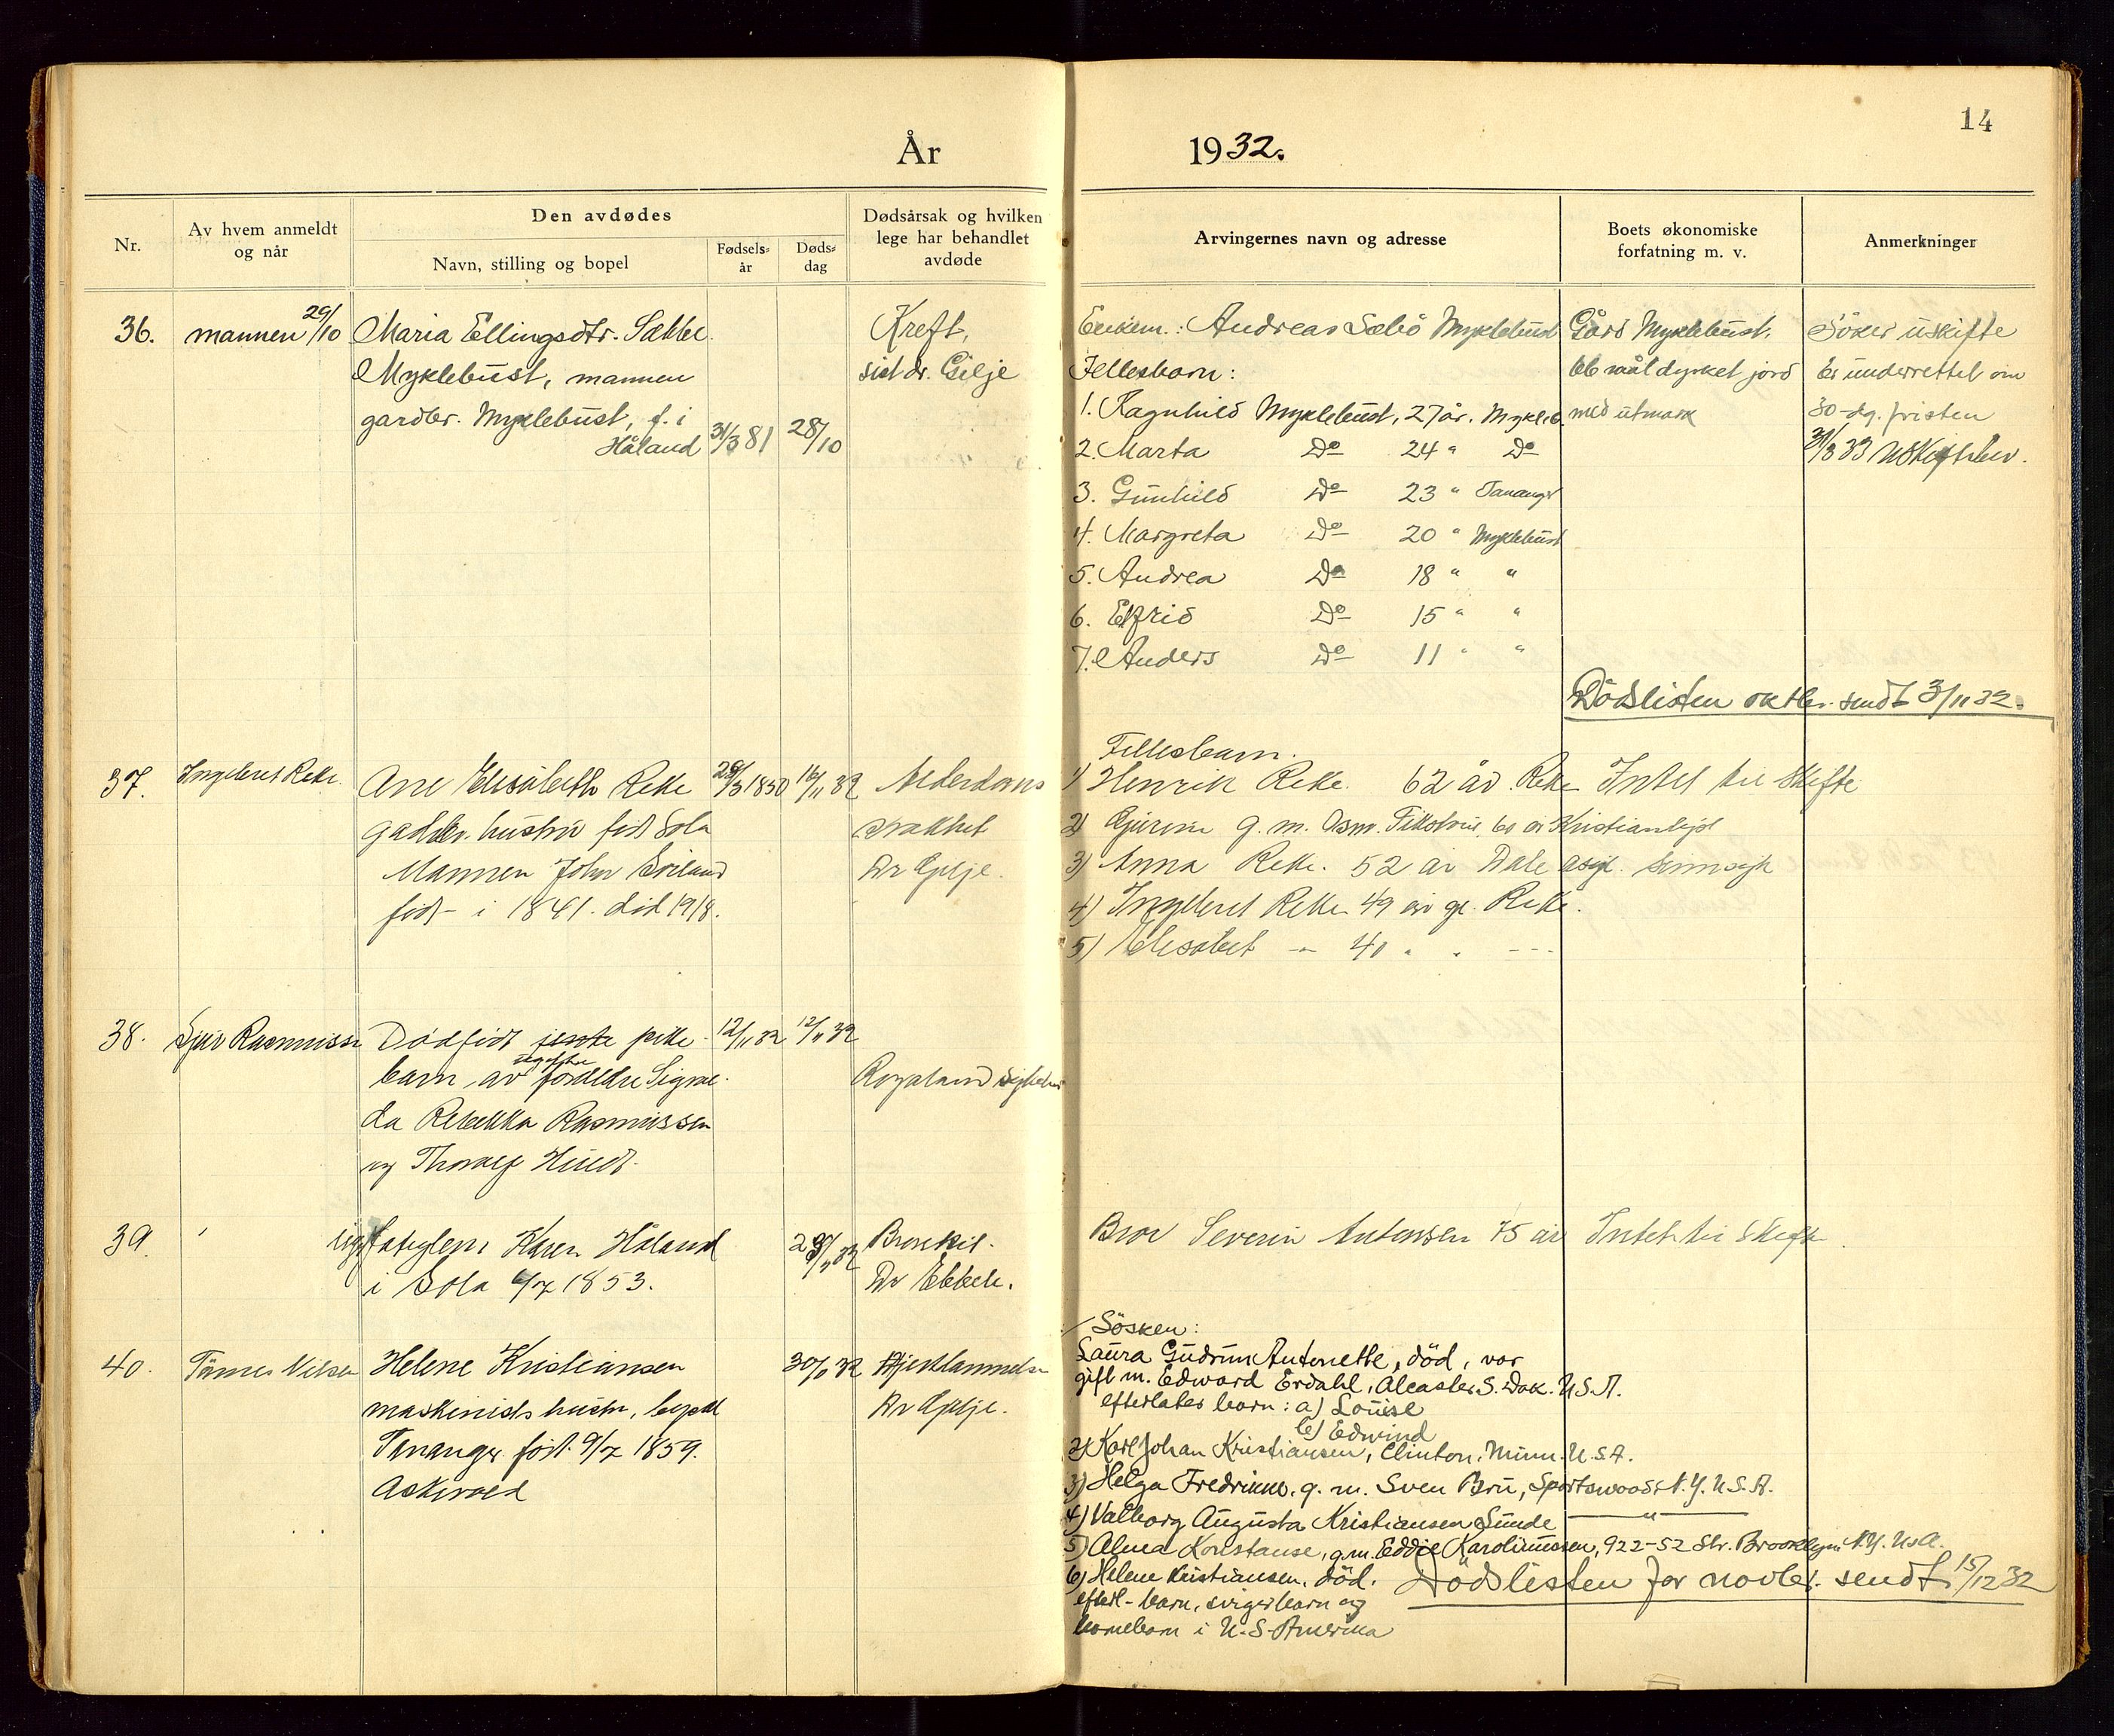 14
År 1932.
Nr.
Av hvem anmeldt
og når
Den avdødes
Navn, stilling og bopel
Fødsels-
år
Døds-
dag
Dødsårsak og hvilken
lege har behandlet
avdøde
Arvingernes navn og adresse
Boets økonomiske
forfatning m. v.
Anmerkninger
36. mannen 29/10 Maria Ellingsdtr. Sækbe
Myklebust, mannen
gardbr. Myklebust, f. i
Håland 31/3 81 28/10
Kreft,
sist dr. Gilje
Enkem.: Andreas Sæbö Myklebust
Fellesbarn:
1. Ragnhild Myklebust, 27 år. Mykleb.
2. Marta Do 24 " Do
3. Gunhild Do 23 " Tananger
4. Margreta Do 20 " Myklebust
5. Andrea Do 18 " "
6. Elfrid Do 15 " "
7. Anders Do 11 " "
Gård Myklebust,
66 mål dyrket jord
med utmark
Söker uskifte
Er underrettet om
30-dg. fristen
31/3 33 Uskiftebev.
Dödslisten oktbr. sendt 3/11 32.
37. Ingeboret Reke. Ane Elisabeth Reke 1850 16/11 32
gardbr. hustru födt Sola
Mannen John
födt i 1841. död 1918.
Alderdoms
svakhet
Dr Gilje.
Fellesbarn.
1) Henrik Reke. 62 år Reke
2) g. m. 60 år
3) Anna Reke. 52 år Dale asyl.
4) Ingeboret Reke 49 år gl. Reke.
5) Elisabet — 40 " " ---
Intet til skifte
38. Sjur Rasmussen Dödfödt jente pike 12/11 32 12/11 32
barn av ugifte foreldre Signe
da Rebekka Rasmussen
og Thoralf
Rogaland sykehus
39. Karen Håland
i Sola 6/7 1853.
Dr
Bror Severin Antonsen 75 år Intet til skifte.
40. Tönnes Nilsen Helene Kristiansen 32
maskinists hustru, bopel
Tananger föd. 9/7 1859.
Askvold
Hjertelammelse
Dr Gilje.
Sösken:
Laura Gudrun Antonette, död, var
gift m. Edward Erdahl, Alcaster S. Dak. U.S.A.
efterlates barn: a) Louise
b) Edwind
2) Karl Johan Kristiansen, Clinton, Minn. U.S.A.
3) Helga Fredrikke, g. m. Sven Bru, Sportswood N.Y. U.S.A.
4) Valborg Augusta Kristiansen Sunde — " —
5) Alma Konstanse, g.m. Eddie Karoliussen, 922-52 Str. Brooklyn N.Y. U.S.A.
6) Helene Kristiansen, död.
efterl. barn, svigerbarn og
barnebarn i U.S. Amerika
Dödslisten for novbr. sendt 15/12 32